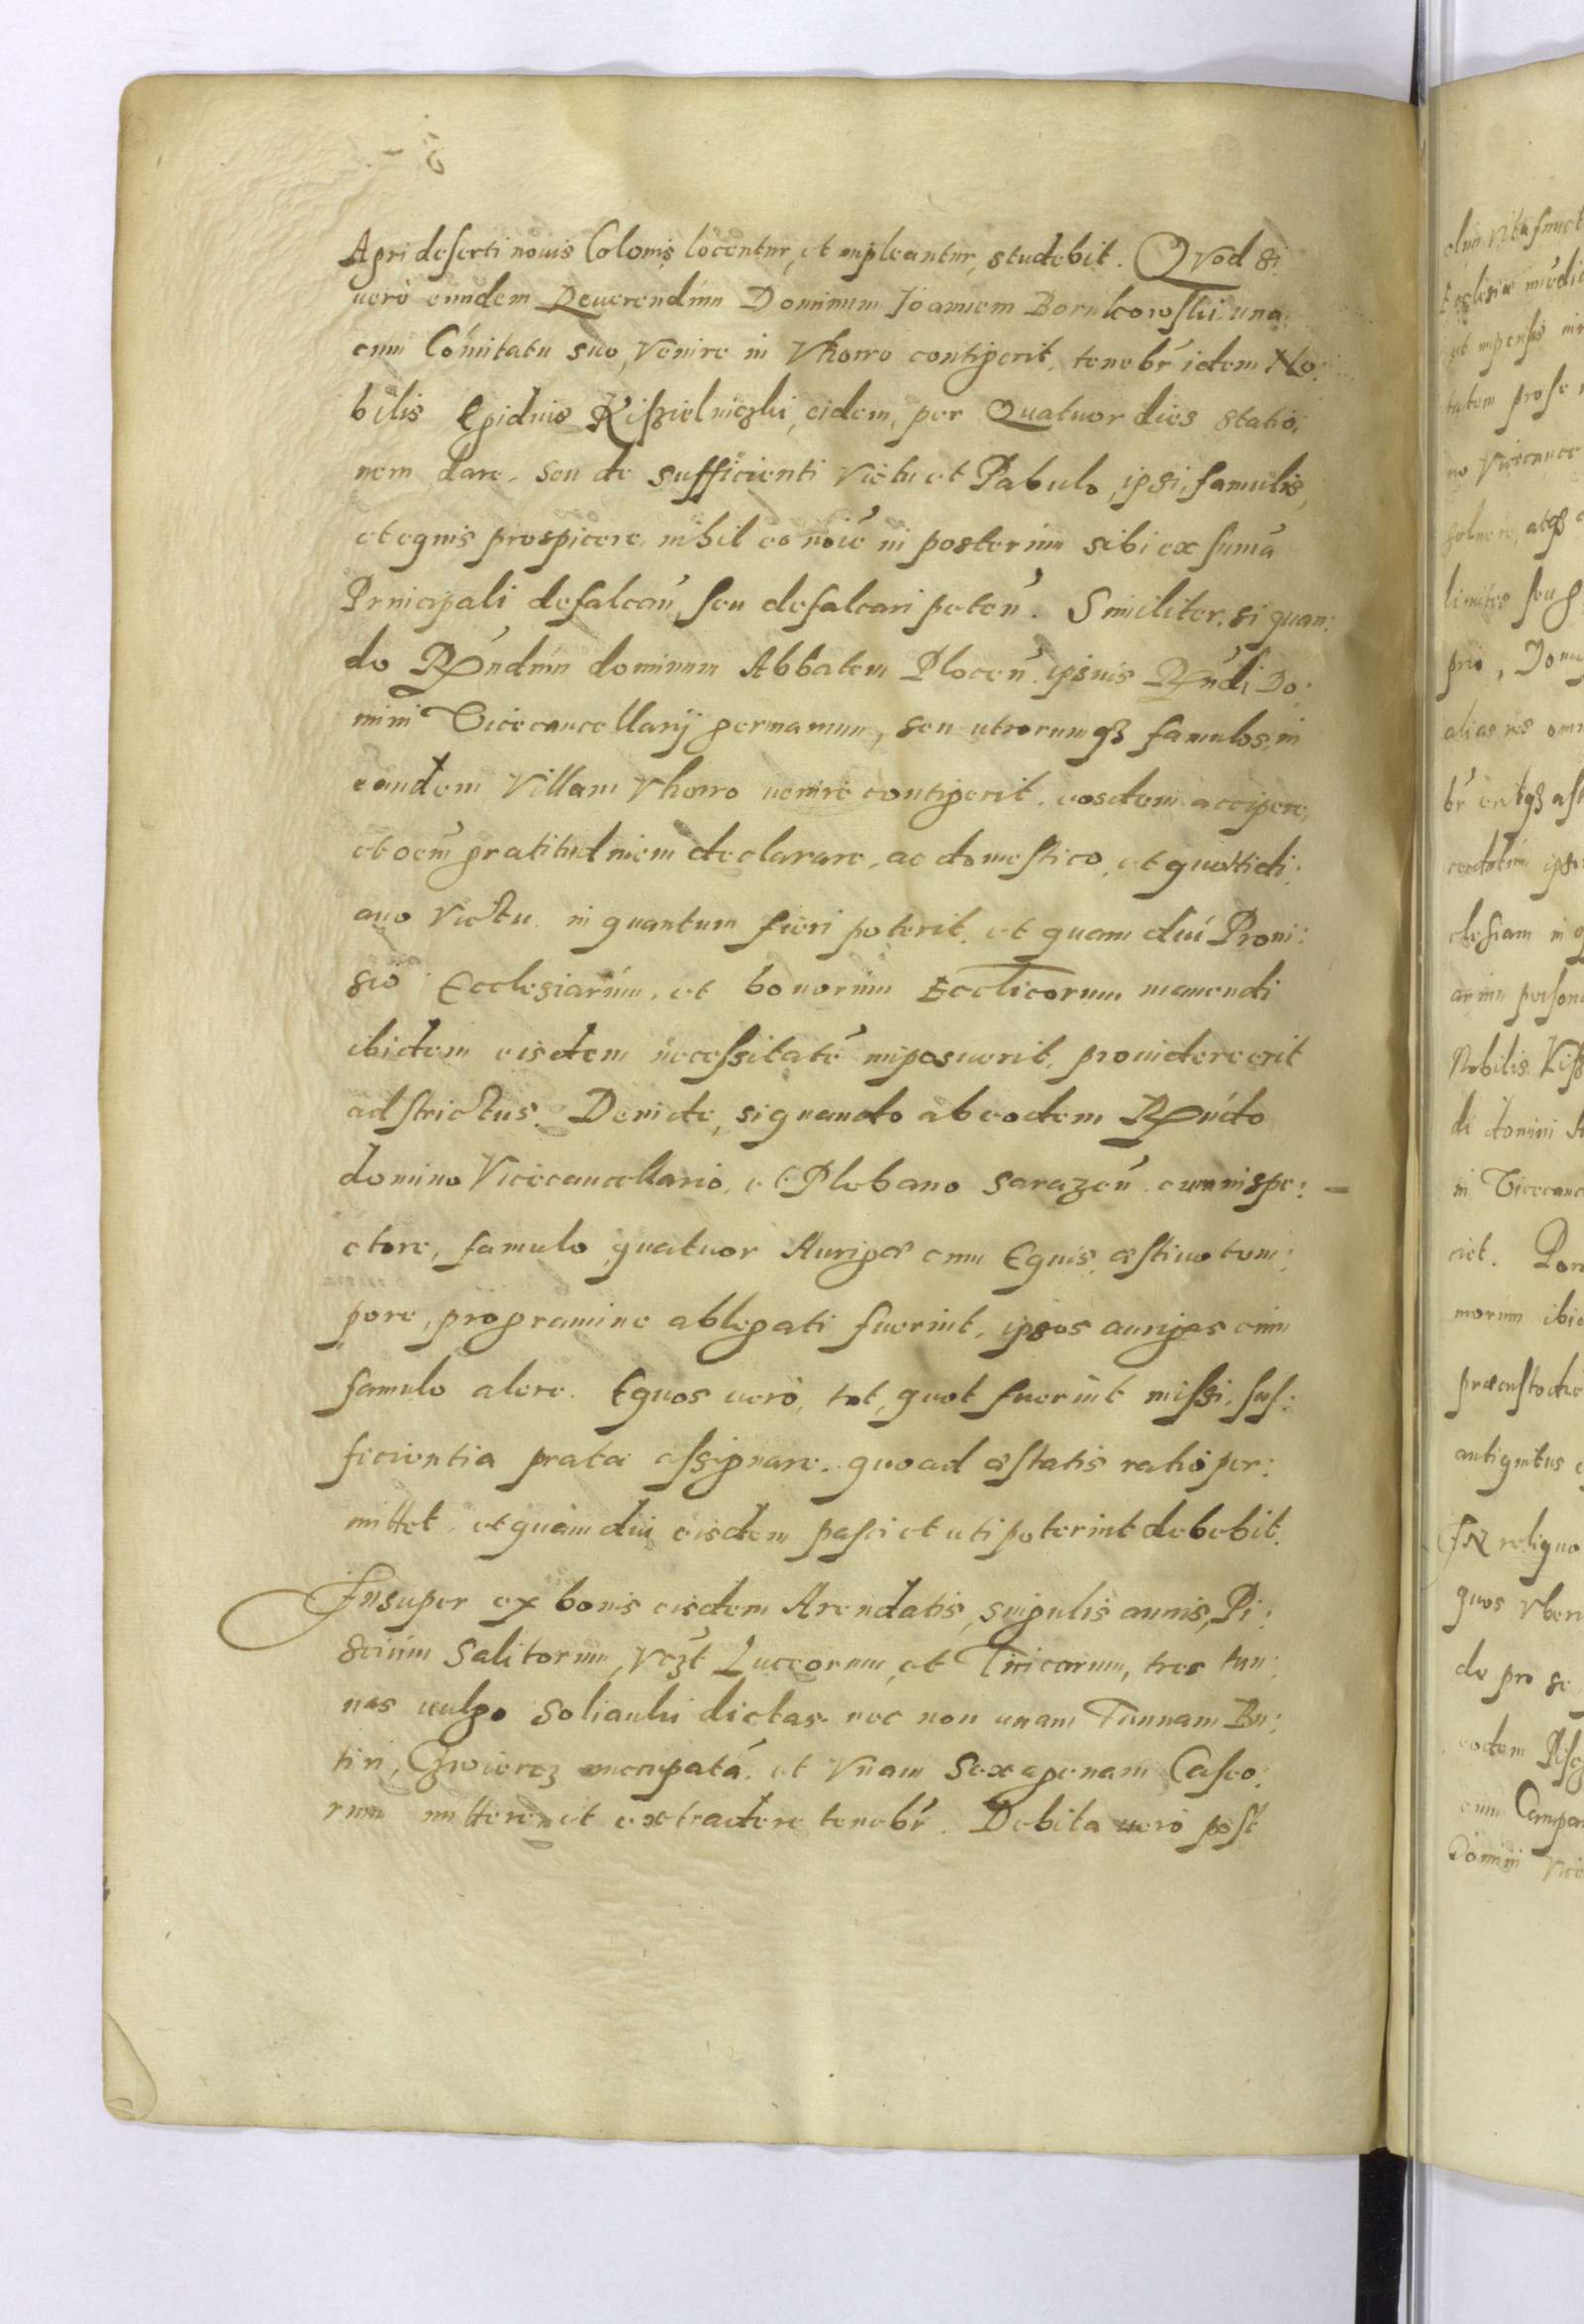 Agri deserti nouis Colonis locentur, et impleantur, studebit. Quod si
uerò eundem Reuerendum Dominum Joannem Borukowski una
cum Comitatu suo, Venire in Vhowo contigerit, tenebr̃ idem No:
bilis Egidius Kisielniczki, eidem, per Quatuor dies statio:
nem dare, seu de sufficienti Victu et Pabulo, ipsi, famulis,
et equis prospicere, nihil eo noiẽ in posterum sibi ex sumã
Principali defalcan̄, seu defalcari peten̄. Similiter, si quan:
do Rn̄dum dominum Abbatem Plocen̄. ipsius Rn̄di Do:
mini Vicecancellarij germanum, seu utrorumq3 famulos, in
eandem Villam Vhowo uenire contigerit, eosdem accipere,
et oem̄ gratitudinem declarare, ac domestico, et quottidi:
ano Victu, in quantum fieri poterit, et quam diu Proui:
sio Ecclesiarum, et bonorum Eccliĉorum manendi
ibidem eisdem necessitatẽ imposuerit, prouidere erit
adstrictus. Deinde, si quando ab eodem Rn̄do
domino Vicecancellario, et Plebano Sarazen̄ cum inspe:
ctore, famulo quatuor Aurigæ cum Equis, æstiuo tem:
pore, pro gramine ablegati fuerint, ipsos aurigas cum
famulo alere. Equos uerò, tot, quot fuerint missi, suf:
ficientia prata assignare, quoad æstatis ratio per:
mittet, et quàm diu eisdem pasci et uti poterint debebit.
Insuper ex bonis eisdem Arendatis, singulis annis, Pi:
scium Salitorum, Vcz̃t Luceorum, et Tincarum, tres tun:
nas uulgo Solianki dictas. nec non unam Tunnam Bu:
tiri, Czwiercz nuncupatã. et Vnam Sexagenam Caseo:
rum mittere, et extradere tenebr̃. Debita uerò post